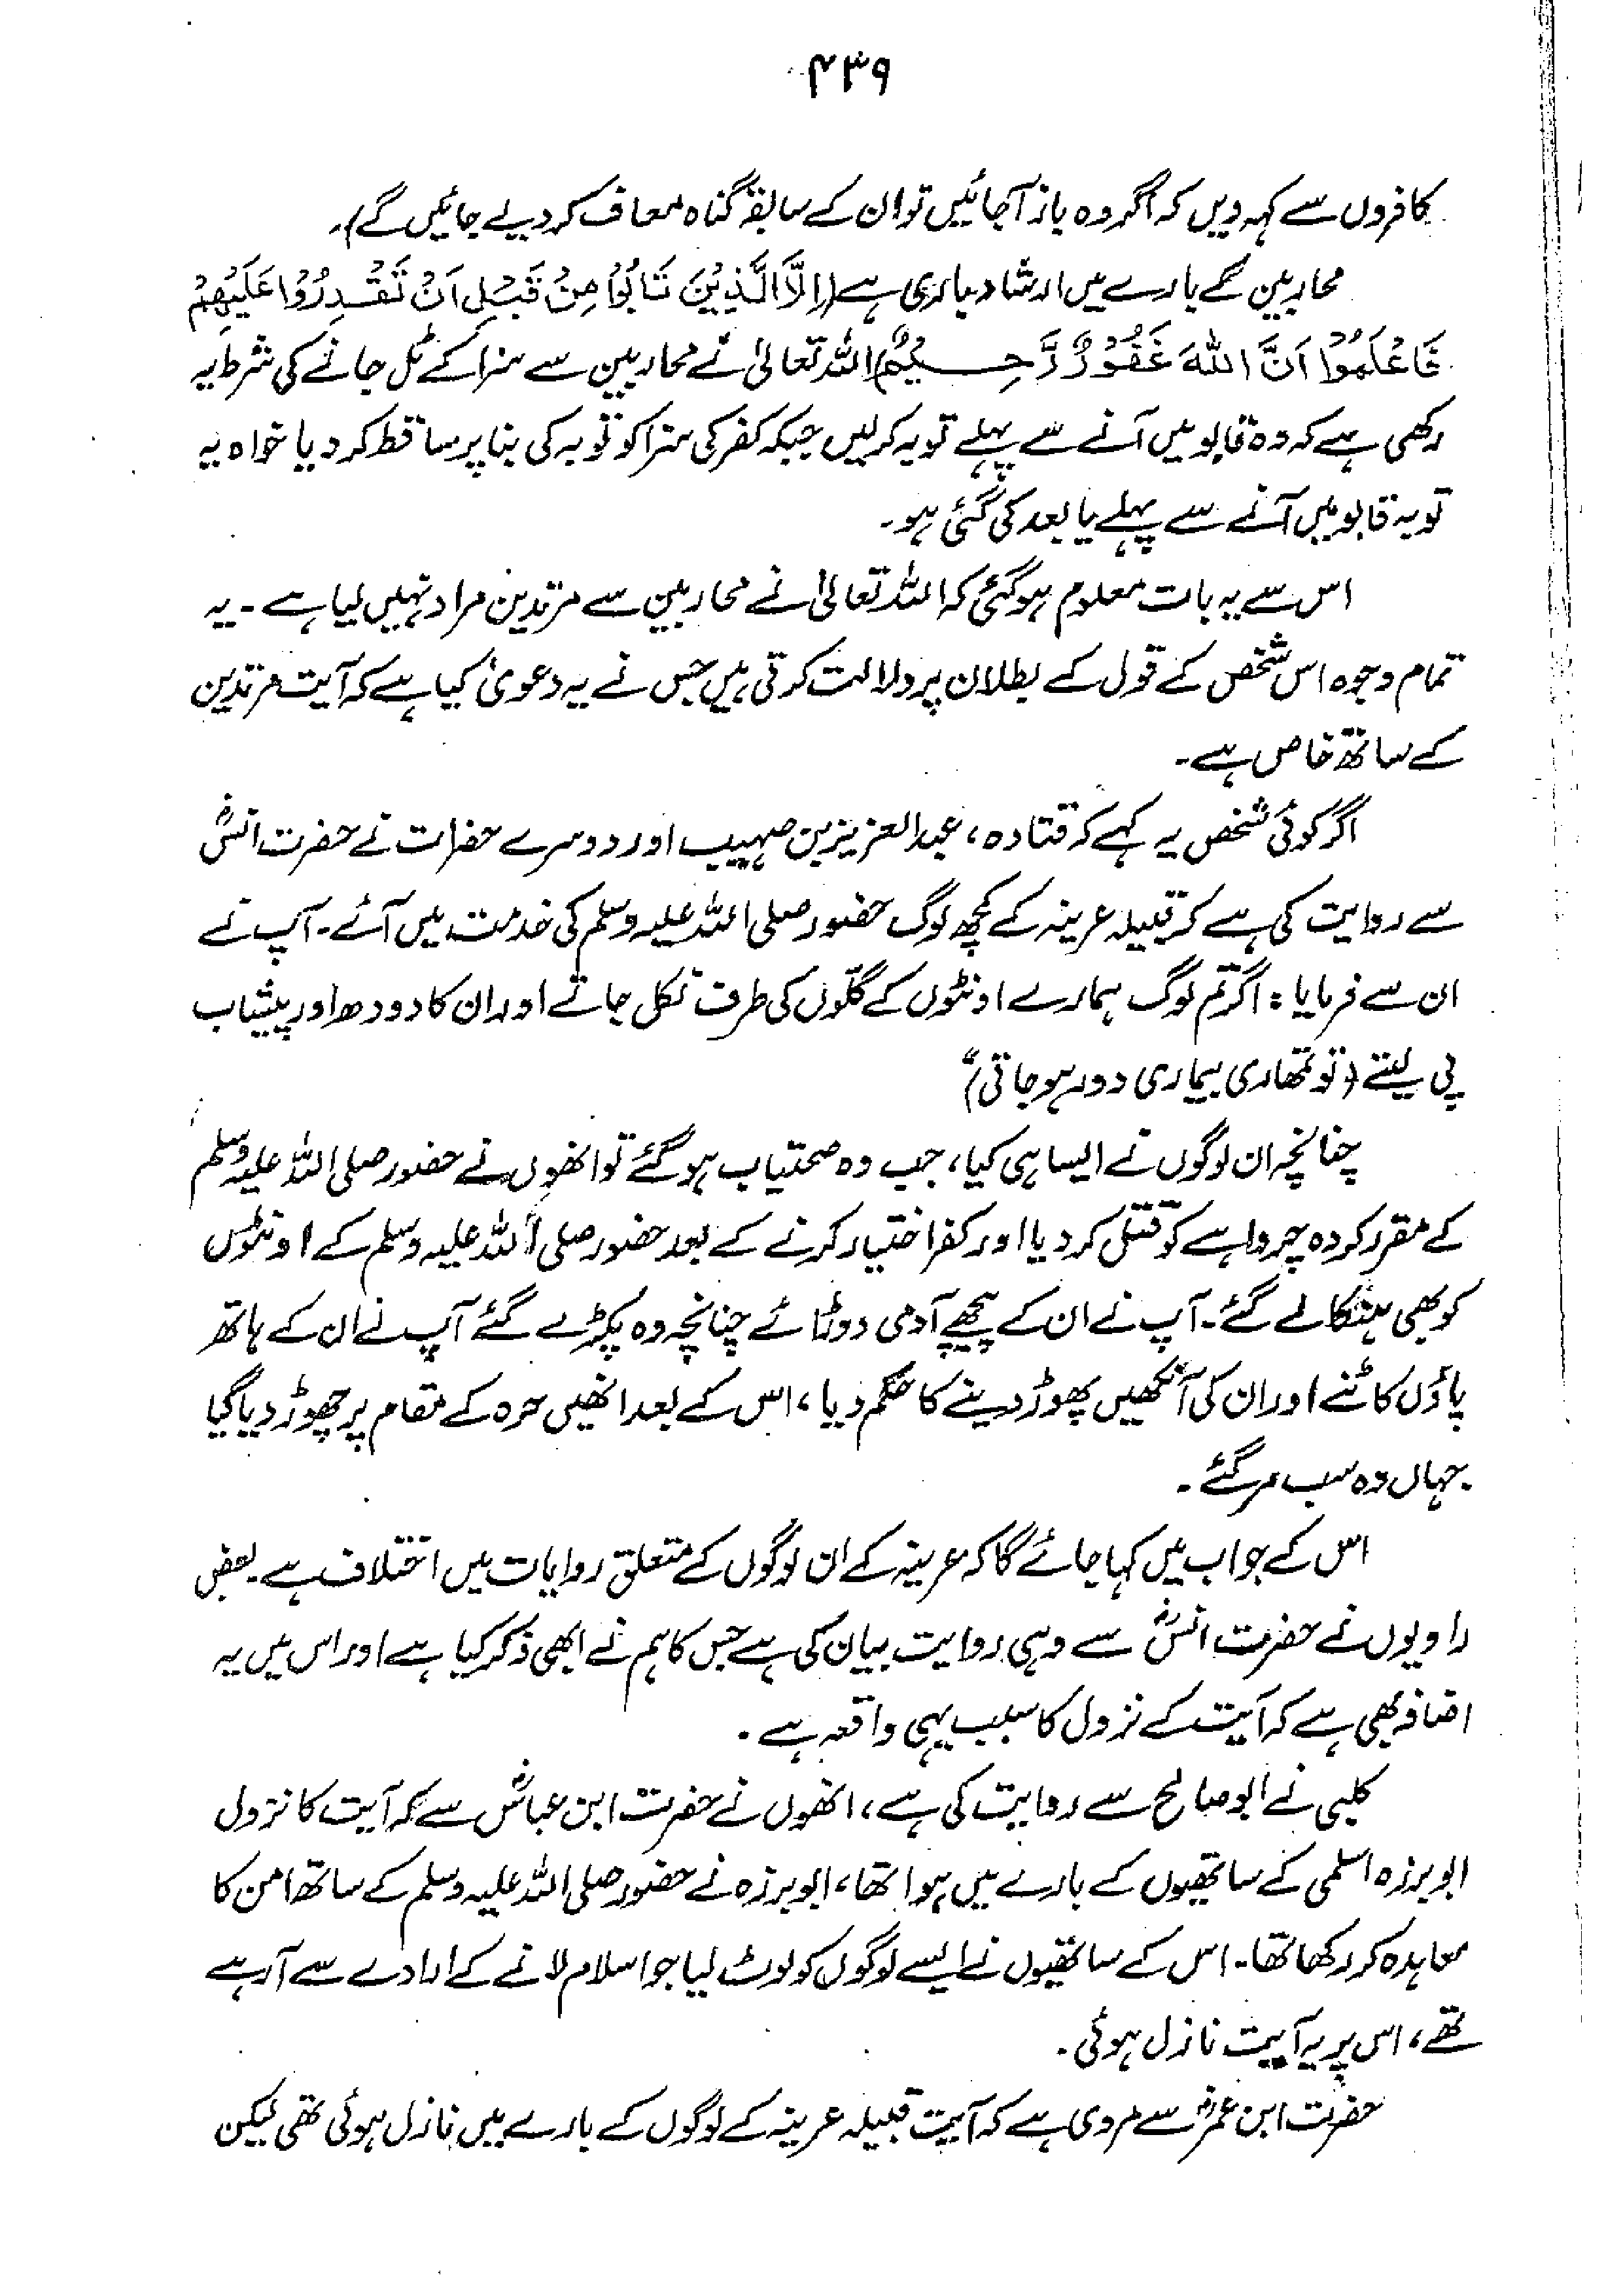 ۴۳۹
کافروں سے کہہ دیں کہ اگر وہ باز آجائیں تو ان کے سابقہ گناہ معاف کر دیے جائیں گے)۔
محاربین کے بارے میں ارشاد باری ہے (اِلَّا الَّذِیْنَ تَابُوْا مِنْ قَبْلِ اَنْ تَقْدِرُوْا عَلَیْهِمْ
فَاعْلَمُوْا اَنَّ اللهَ غَفُوْرٌ رَّحِیْمٌ) اللہ تعالیٰ نے محاربین سے سزا کے ٹل جانے کی شرط یہ
رکھی ہے کہ وہ قابو میں آنے سے پہلے توبہ کرلیں جبکہ کفر کی سزا کو توبہ کی بنا پر ساقط کر دیا خواہ یہ
توبہ قابو میں آنے سے پہلے یا بعد کی گئی ہو۔
اس سے یہ بات معلوم ہوگئی کہ اللہ تعالیٰ نے محاربین سے مرتدین مراد نہیں لیا ہے۔ یہ
تمام وجوہ اس شخص کے قول کے بطلان پر دلالت کرتی ہیں جس نے یہ دعویٰ کیا ہے کہ آیت مرتدین
کے ساتھ خاص ہے۔
اگر کوئی شخص یہ کہے کہ قتادہ، عبدالعزیز بن صہیب اور دوسرے حضرات نے حضرت انسؓ
سے روایت کی ہے کہ قبیلہ عرینہ کے کچھ لوگ حضور صلی اللہ علیہ وسلم کی خدمت میں آئے۔ آپ نے
ان سے فرمایا: اگر تم لوگ ہمارے اونٹوں کے گلّوں کی طرف نکل جاتے اور ان کا دودھ اور پیشاب
پی لیتے (تو تمھاری بیماری دور ہو جاتی)"
چنانچہ ان لوگوں نے ایسا ہی کیا، جب وہ صحتیاب ہوگئے تو انھوں نے حضور صلی اللہ علیہ وسلم
کے مقرر کردہ چرواہے کو قتل کر دیا اور کفر اختیار کرنے کے بعد حضور صلی اللہ علیہ وسلم کے اونٹوں
کو بھی ہنکا لے گئے۔ آپ نے ان کے پیچھے آدمی دوڑائے چنانچہ وہ پکڑے گئے آپ نے ان کے ہاتھ
پاؤں کاٹنے اور ان کی آنکھیں پھوڑ دینے کا حکم دیا، اس کے بعد انھیں حرہ کے مقام پر چھوڑ دیا گیا
جہاں وہ سب مر گئے۔
اس کے جواب میں کہا جائے گا کہ عرینہ کے ان لوگوں کے متعلق روایات میں اختلاف ہے۔ بعض
راویوں نے حضرت انسؓ سے وہی روایت بیان کی ہے جس کا ہم نے ابھی ذکر کیا ہے اور اس میں یہ
اضافہ بھی ہے کہ آیت کے نزول کا سبب یہی واقعہ ہے۔
کلبی نے ابو صالح سے روایت کی ہے، انھوں نے حضرت ابن عباسؓ سے کہ آیت کا نزول
ابوبرزہ اسلمی کے ساتھیوں کے بارے میں ہوا تھا، ابوبرزہ نے حضور صلی اللہ علیہ وسلم کے ساتھ امن کا
معاہدہ کر رکھا تھا۔ اس کے ساتھیوں نے ایسے لوگوں کو لوٹ لیا جو اسلام لانے کے ارادے سے آرہے
تھے، اس پر یہ آیت نازل ہوئی۔
حضرت ابن عمرؓ سے مروی ہے کہ آیت قبیلہ عرینہ کے لوگوں کے بارے میں نازل ہوئی تھی لیکن